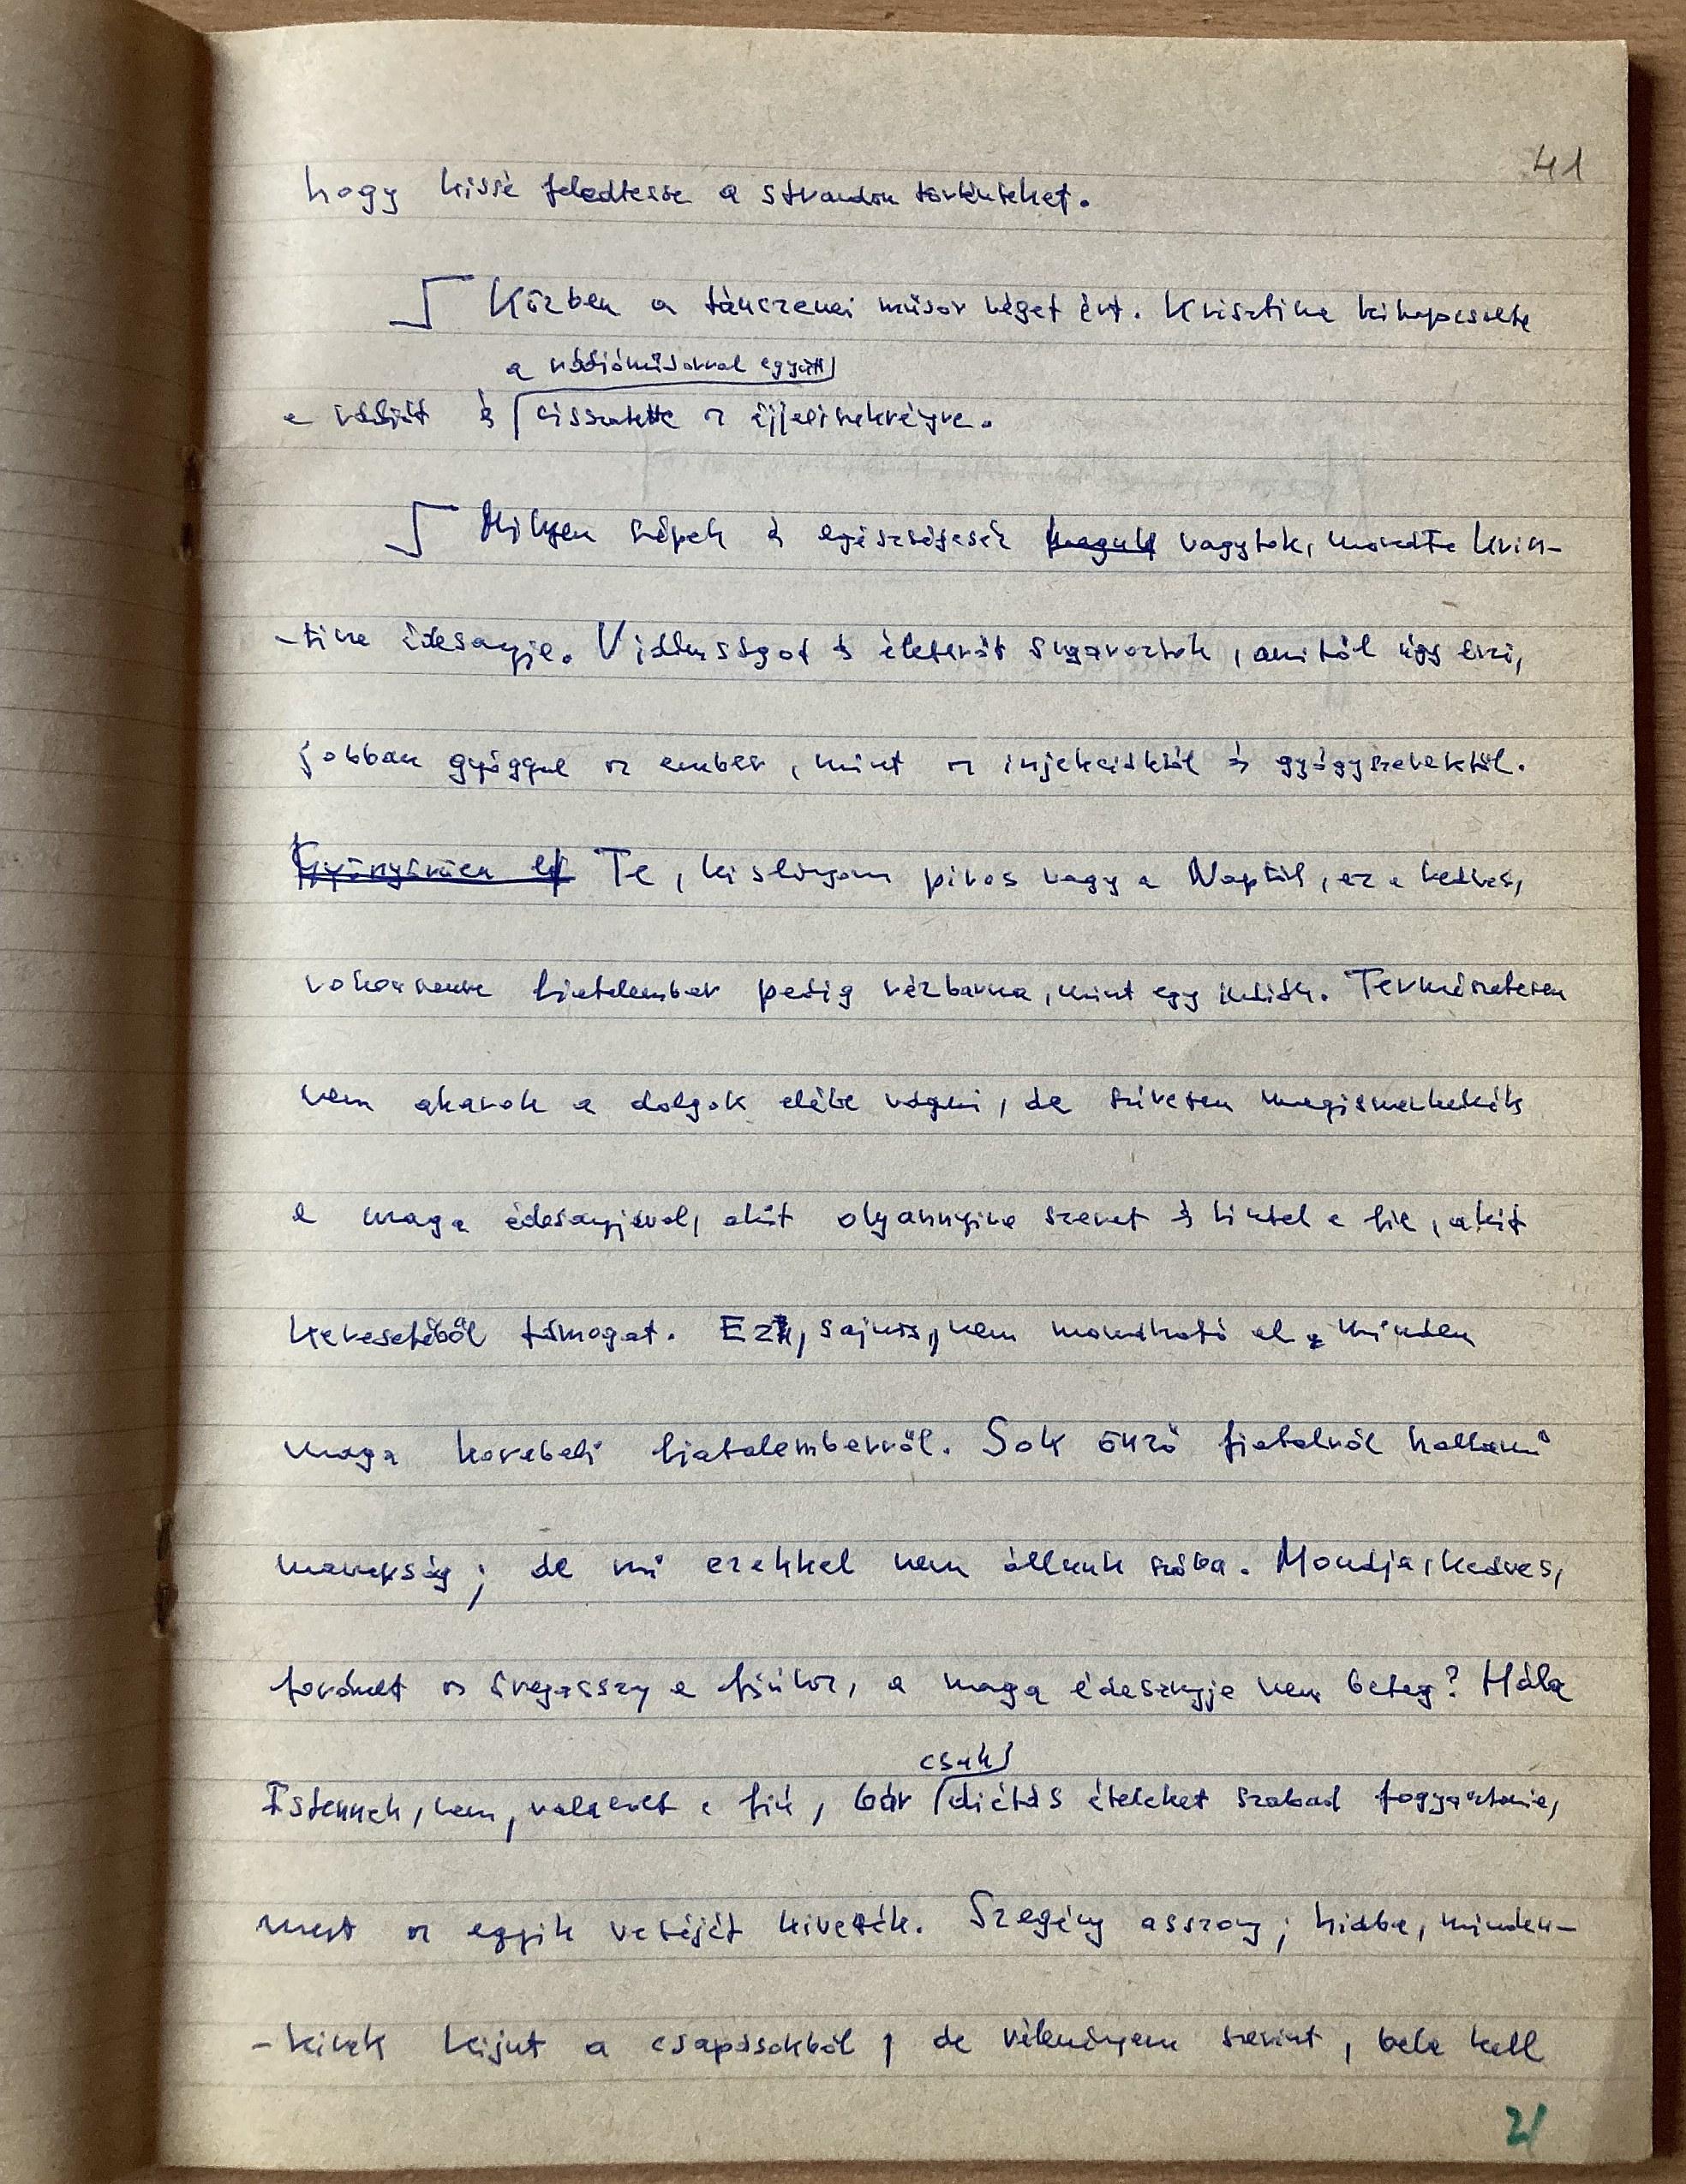 41
hogy kissé feledtesse a strandon történteket.
Közben a tánczenei műsor véget ért. Krisztina kikapcsolta
a rádióműsorral együtt
a rádiót és visszatette az éjjeliszekrényre.
Milyen szépek és egészségesek maguk vagytok, mondta Krisz-
-tina édesanyja. Vidámságot és életerőt sugároztok, amitől úgy érzi,
jobban gyógyul az ember, mint az injekcióktól és gyógyszerektől.
Gyönyörűen el Te, kislányom piros vagy a Naptól, ez a kedves,
rokonszenves fiatalember pedig rézbarna, mint egy indián. Természetesen
nem akarok a dolgok elébe vágni, de szívesen megismerkednék
a maga édesanyjával, akit olyannyira szeret és tisztel a fia, akit
keresetéből támogat. Ez, sajnos, nem mondható el minden
maga korabeli fiatalemberről. Sok önző fiatalról hallani
manapság; de mi ezekkel nem állunk szóba. Mondja, kedves,
fordult az öregasszony a fiúhoz, a maga édesanyja nem beteg? Hála
csak
Istennek, nem, válaszolt a fiú, bár diétás ételeket szabad fogyasztania,
mert az egyik veséjét kivették. Szegény asszony; hiába, minden-
-kinek kijut a csapásokból, de véleményem szerint, bele kell
21